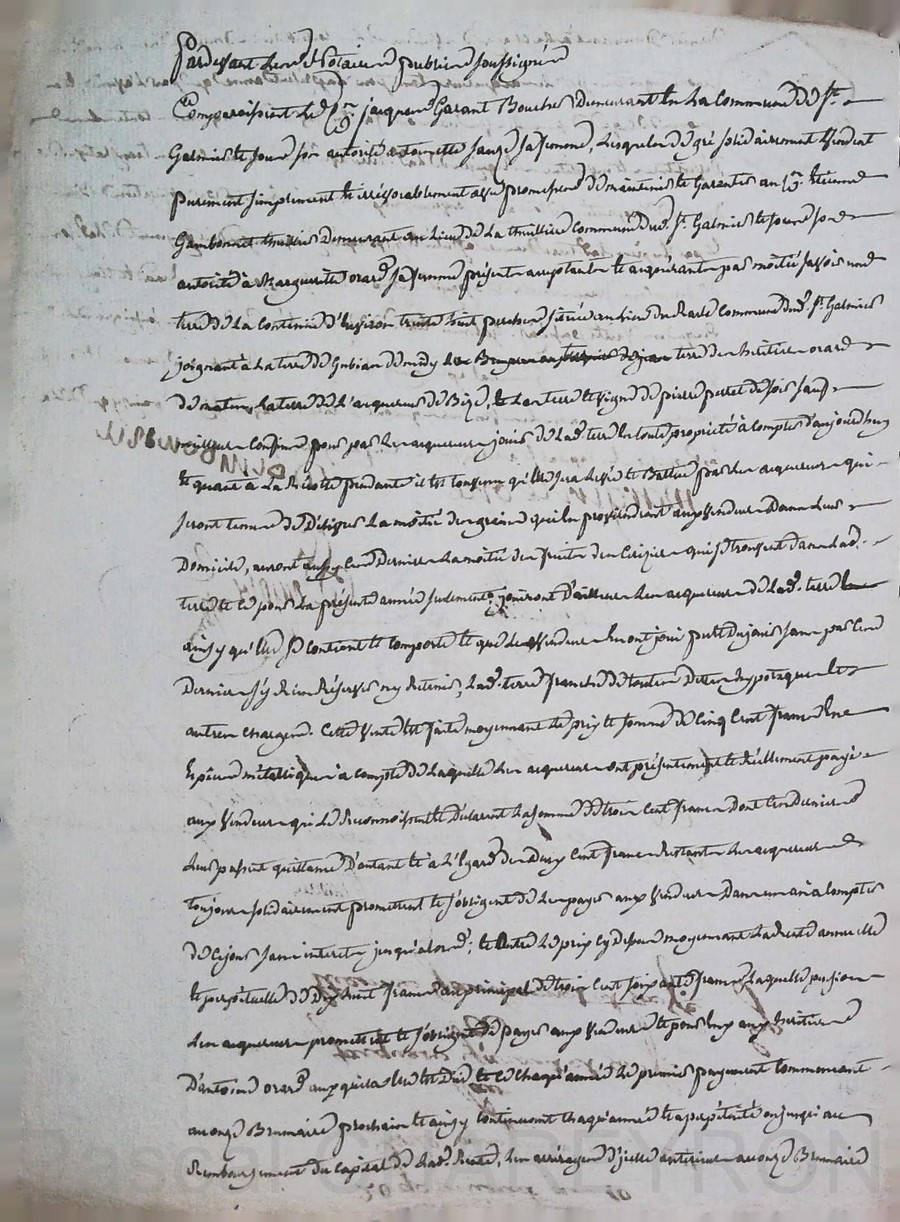 Pardevant Les Notaires publics soussignés
Comparaissent Le Cn. jacques Garant Boucher Demeurant En La Commune de St.
Galmier et sous son autorité antoinette sa femme, Lesquels de gré solidairement Vendent
purement simplement et irrévocablement avec promesses de maintenir et Garantir au Cn. Etienne
Gambonnet thuillier Demeurant au Lieu de La thuillière Commune dud. St. Galmier et sous son
autorité à Marguerite orard sa femme présents acceptants et acquérants par moitié savoir une
terre de La Contenue d'Environ trente huit perches située au Lieu du Commune dud. St. Galmier
joignant à La terre de Gubian de midy terre des héritiers orard
de matin, La terre de L'acquereur de Bize, Et La terre et vigne de pierre de soir sauf
meilleurs Confins pour par Les acquereurs jouir de Lad. terre En toute propriété à Compter d'aujourd'huy
Et quant à La Récolte pendante il est Convenu qu'Elle sera Levée et Battue par Les acquereurs qui
seront tenus de La moitié des grains qui En proviendront aux Vendeurs Dans Leur
Domicile, auront aussy Ces Derniers La moitié des fruits des Cerisiers qui se trouvent dans Lad.
terre et ce pour La présente année seulement; jouiront D'ailleurs Les acquereurs de Lad. terre
ainsy qu'Elle se Contient et Comporte et que Les Vendeurs En ont joui pu et Du jouir sans par Ces
Derniers s'y Rien Réserver ny Retenir, Lad. terre franche de toutes Dettes hypotèques Et
autres Charges. Cette Vente Est faite moyennant Le prix et somme de Cinq Cent francs En
Espèces métalliques à Compte de Laquelle Les acquereurs ont présentement et Réellement payé
aux Vendeurs qui Le Reconnoissent et Déclarent La somme de trois Cent francs Dont Ces Derniers
Leur passent quittance D'autant et à L'égard des Deux Cent francs Restants Les acquereurs
toujours solidairement promettent et s'obligent de Les payer aux Vendeurs Dans un an à Compter
de Ce jour sans interets jusqu'alors; et outre Le prix cy dessus moyennant La Rente annuelle
et perpétuelle de Dix huit francs au principal de trois Cent soixante francs Laquelle pension
Les acquereurs promettent et s'obligent de payer aux Vendeurs et pour Eux aux héritiers
D'antoine orard auxquels Elle Est Due et ce chaqu'année Le premier payement Commencant
au onze Brumaire prochain et ainsy Continueront chaqu'année et à perpétuité ou jusqu'au
Remboursement du Capital de Lad. Rente, Les arrérages d'icelle antérieurs au onze Brumaire